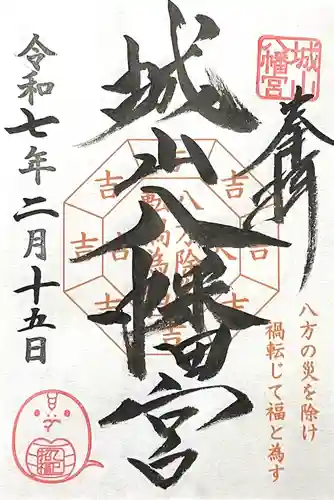 奉拝
城山八幡宮
城山
八幡宮
八方の災を除け
禍転じて福と為す
吉
吉
吉
吉
吉
吉
令和七年二月十五日